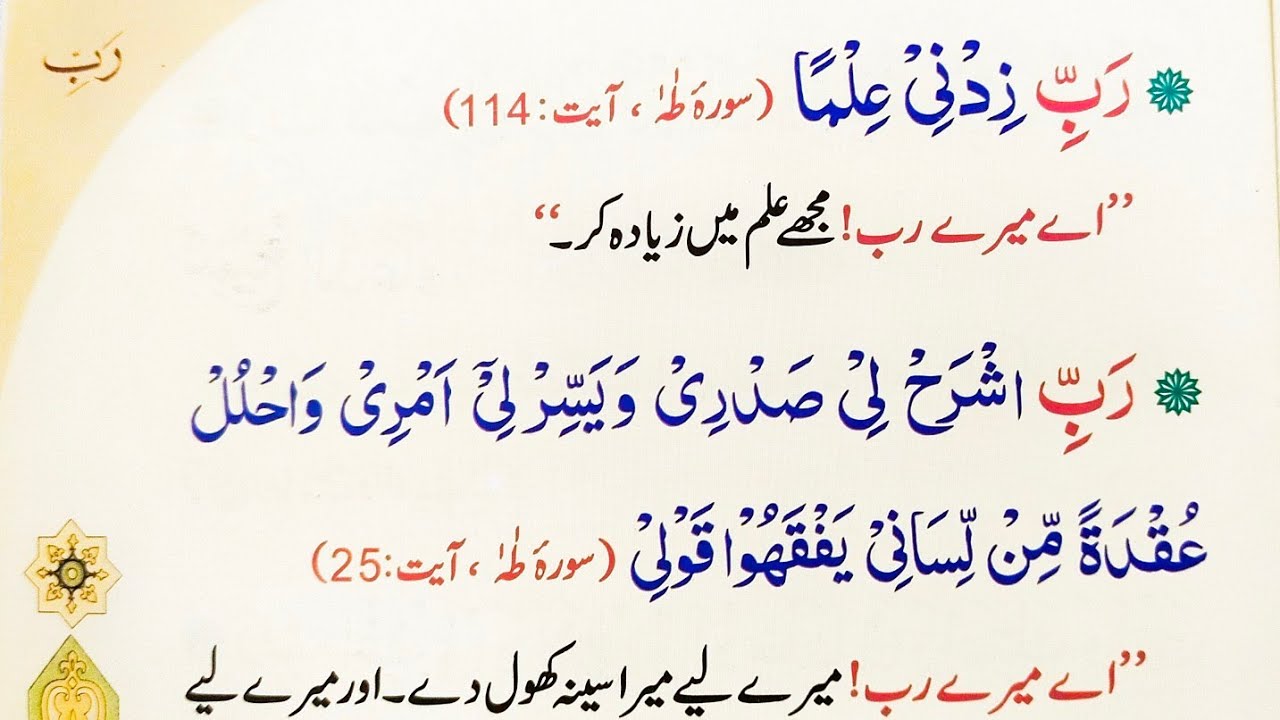 رَبِّ
رَبِّ زِدْنِیْ عِلْمًا (سورۂ طٰہٰ ، آیت:114)
”اے میرے رب! مجھے علم میں زیادہ کر۔“
رَبِّ اشْرَحْ لِیْ صَدْرِیْ وَیَسِّرْ لِیْۤ اَمْرِیْ وَاحْلُلْ
عُقْدَةً مِّنْ لِّسَانِیْ یَفْقَهُوْا قَوْلِیْ (سورۂ طٰہٰ ، آیت:25)
”اے میرے رب! میرے لیے میرا سینہ کھول دے۔ اور میرے لیے